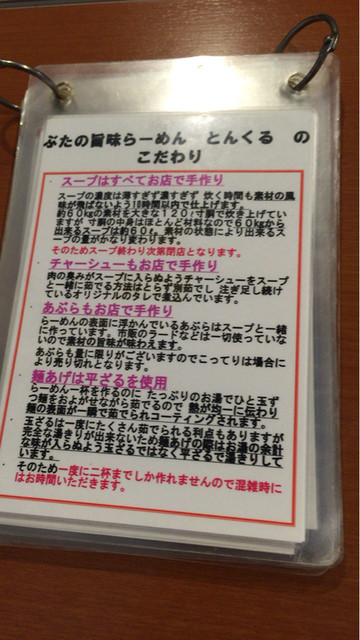 ぶたの旨味らーめん とんくる の
こだわり
・スープはすべてお店で手作り
スープの濃度は薄すぎず濃すぎず 炊く時間も素材の風
味が飛ばないよう18時間以内で仕上げます。
約60kgの素材を大きな120ℓ寸胴で炊き上げてい
ますが 寸胴の中身はほとんど材料なので60kgから
出来るスープは約60ℓ。素材の状態により出来るス
ープの量がかなり変わります。
そのためスープ終わり次第閉店となります。
・チャーシューもお店で手作り
肉の臭みがスープに入らぬようチャーシューをスープ
と一緒に茹でる方法はとらず別茹でし 注ぎ足し続け
ているオリジナルのタレで煮込んでいます。
・あぶらもお店で手作り
らーめんの表面に浮かんでいるあぶらはスープと一緒
に作っています。市販のラードなどは一切使っていな
いので素材の旨味が味わえます。
あぶらも量に限りがございますのでこってりは場合に
より売り切れとなります。
・麺あげは平ざるを使用
らーめん一杯を作るのに たっぷりのお湯でひと玉ず
つ麺をおよがせながら茹でるので 熱が均一に伝わり
麺の表面が一瞬で茹でられコーティングされます。
玉ざるは一度にたくさん茹でられる利点もありますが
完全な湯きりが出来ないため麺あげの際はお湯の余計
な味が入らぬよう玉ざるではなく平ざるで湯きりして
います。
そのため一度に二杯までしか作れませんので混雑時に
はお時間いただきます。